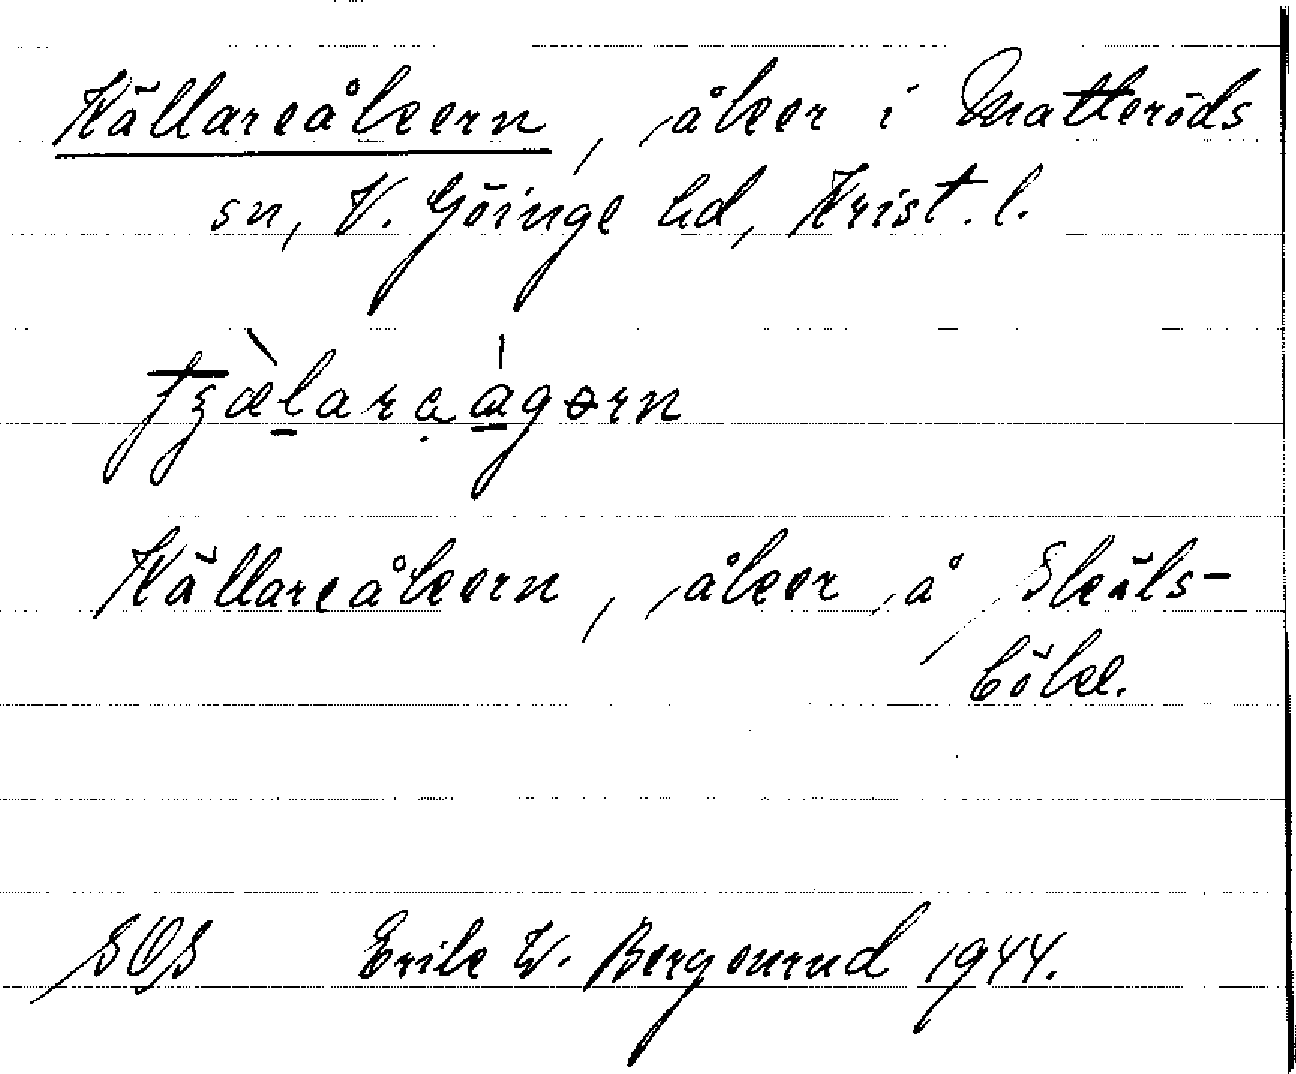 Källareåkern, åker i Matteröds
sn, V. Göinge hd, Krist. l.
Källareåkern, åker å Skäls-
böke.
SOS Erik W. Bergenrud 1944.